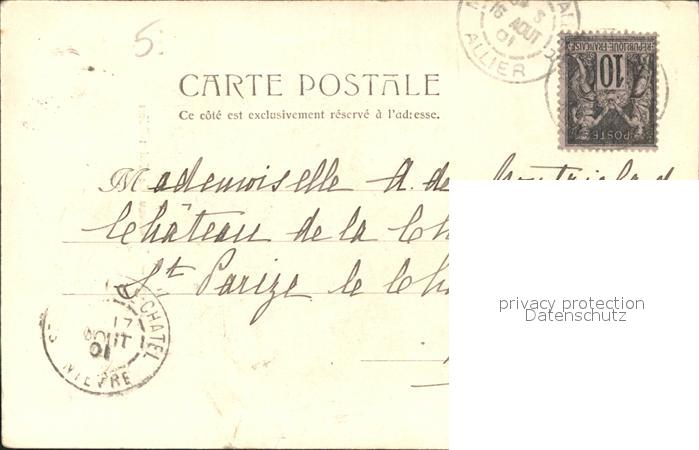 5.
16 AOUT 01
ALLIER
REPUBLIQUE FRANÇAISE
10
POSTES
CARTE POSTALE
Ce côté est exclusivement réservé à l'adresse.
Mademoiselle A. de
Château de la Ch
St Parize le Châ
CHATEL
17 AOUT 01
NIEVRE
privacy protection
Datenschutz